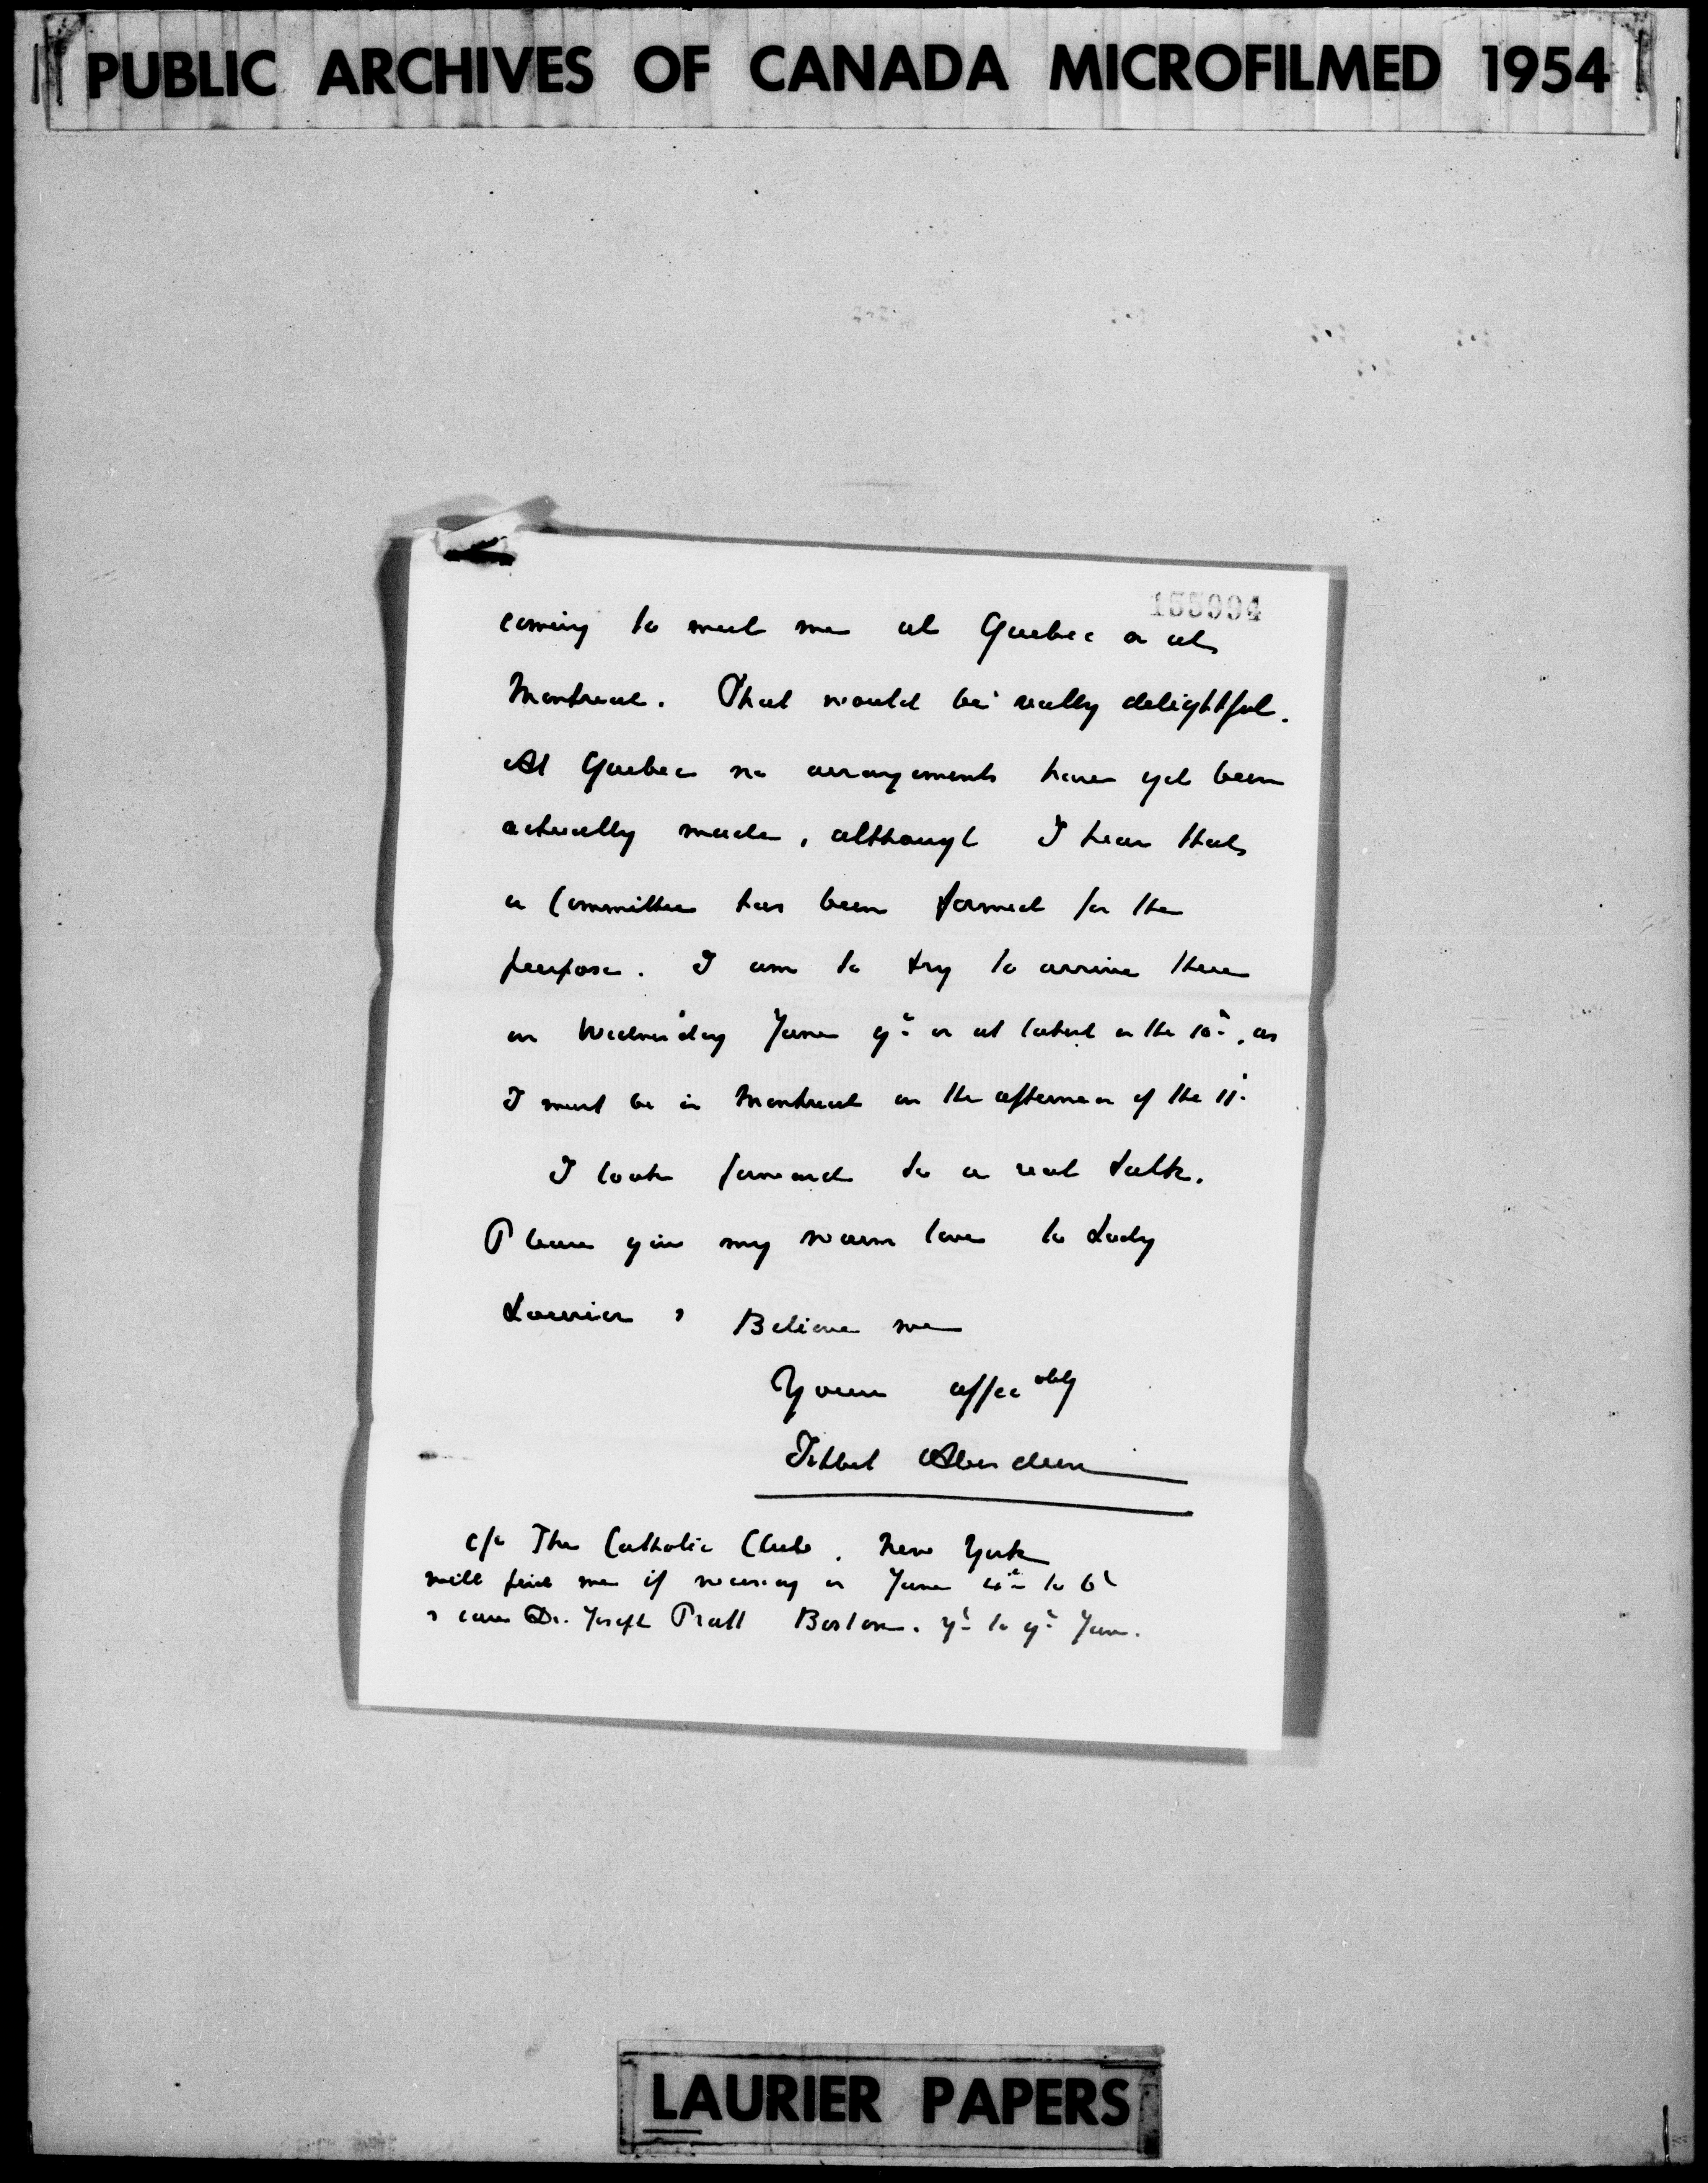 PUBLIC ARCHIVES OF CANADA MICROFILMED 1954
155994
coming to meet me at Quebec or at
Montreal. That would be really delightful.
At Quebec no arrangements have yet been
actually made, although I hear that
a Committee has been formed for the
purpose. I am to try to arrive there
on Wednesday June 9th or at latest on the 10th, as
I must be in Montreal on the afternoon of the 11th
I look forward to a real talk.
Please give my warm love to Lady
Laurier & Believe me
Yours affecately
Ishbel Aberdeen
c/o The Catholic Club, New York
will find me if necessary on June to 6th
& care Dr. Joseph Pratt Boston. 7th to 9th June.
LAURIER PAPERS